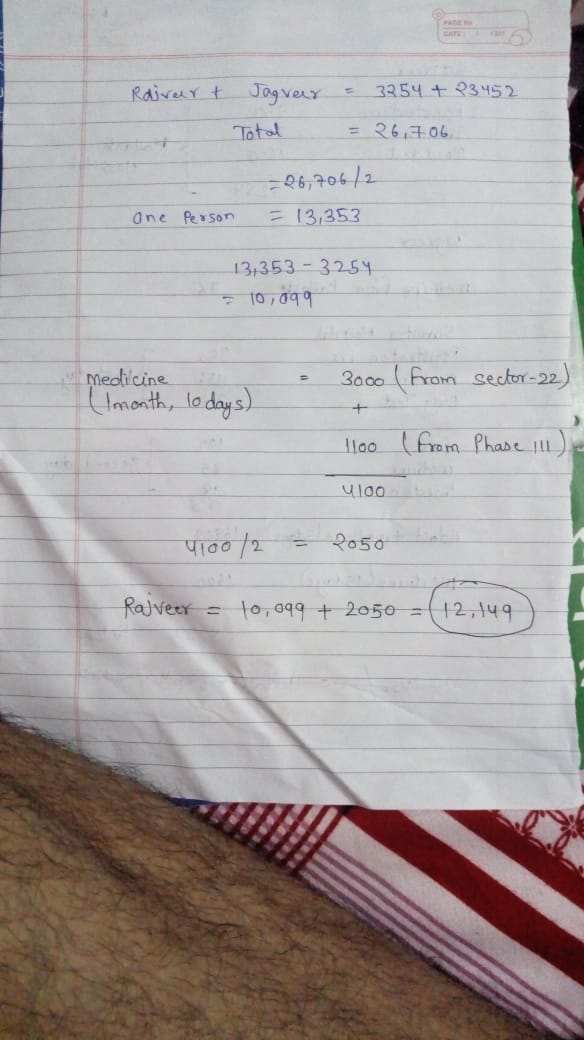 PAGE No
DATE: / /201
Rajveer + Jagveer = 3254 + 23452
Total = 26,706
= 26,706/2
One Person = 13,353
13,353 - 3254
= 10,099
medicine = 3000 (from sector-22)
(1month, 10 days) +
1100 (from Phase III)
4100
4100/2 = 2050
Rajveer = 10,099 + 2050 = 12,149